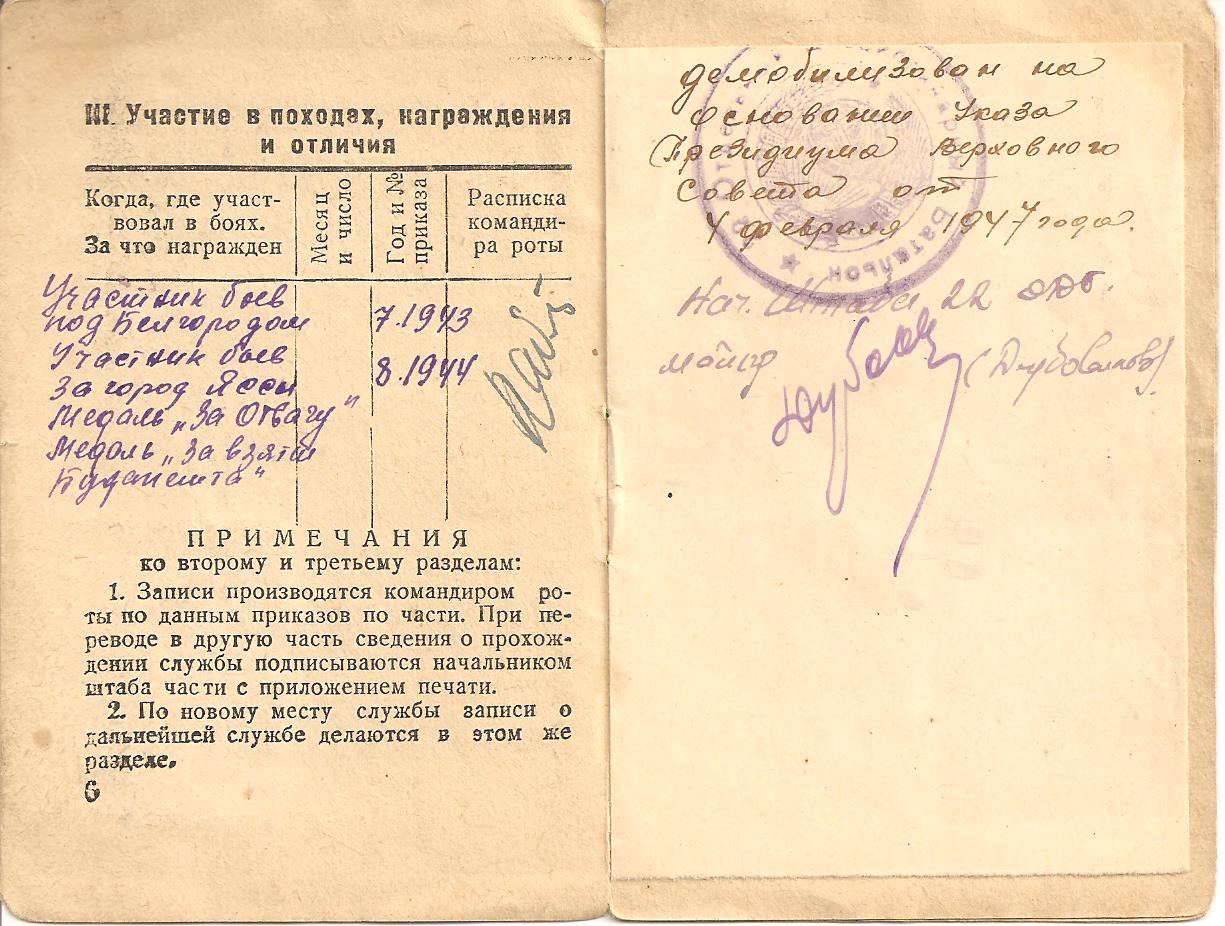 III. Участие в походах, награждения
и отличия
Когда, где участ-
вовал в боях.
За что награжден
Месяц
и число
Год и №
приказа
Расписка
команди-
ра роты
Участник боев
под Белгородом 7.1943
Участник боев
за город Яссы 8.1944
Медаль „За Отвагу"
Медаль „За взятие
Будапешта"
ПРИМЕЧАНИЯ
ко второму и третьему разделам:
1. Записи производятся командиром ро-
ты по данным приказов по части. При пе-
реводе в другую часть сведения о прохож-
дении службы подписываются начальником
штаба части с приложением печати.
2. По новому месту службы записи о
дальнейшей службе делаются в этом же
разделе.
6
демобилизован на
основании Указа
Президиума Верховного
Совета от
4 февраля 1947 года.
Нач. Штаба 22
майор
Батальон